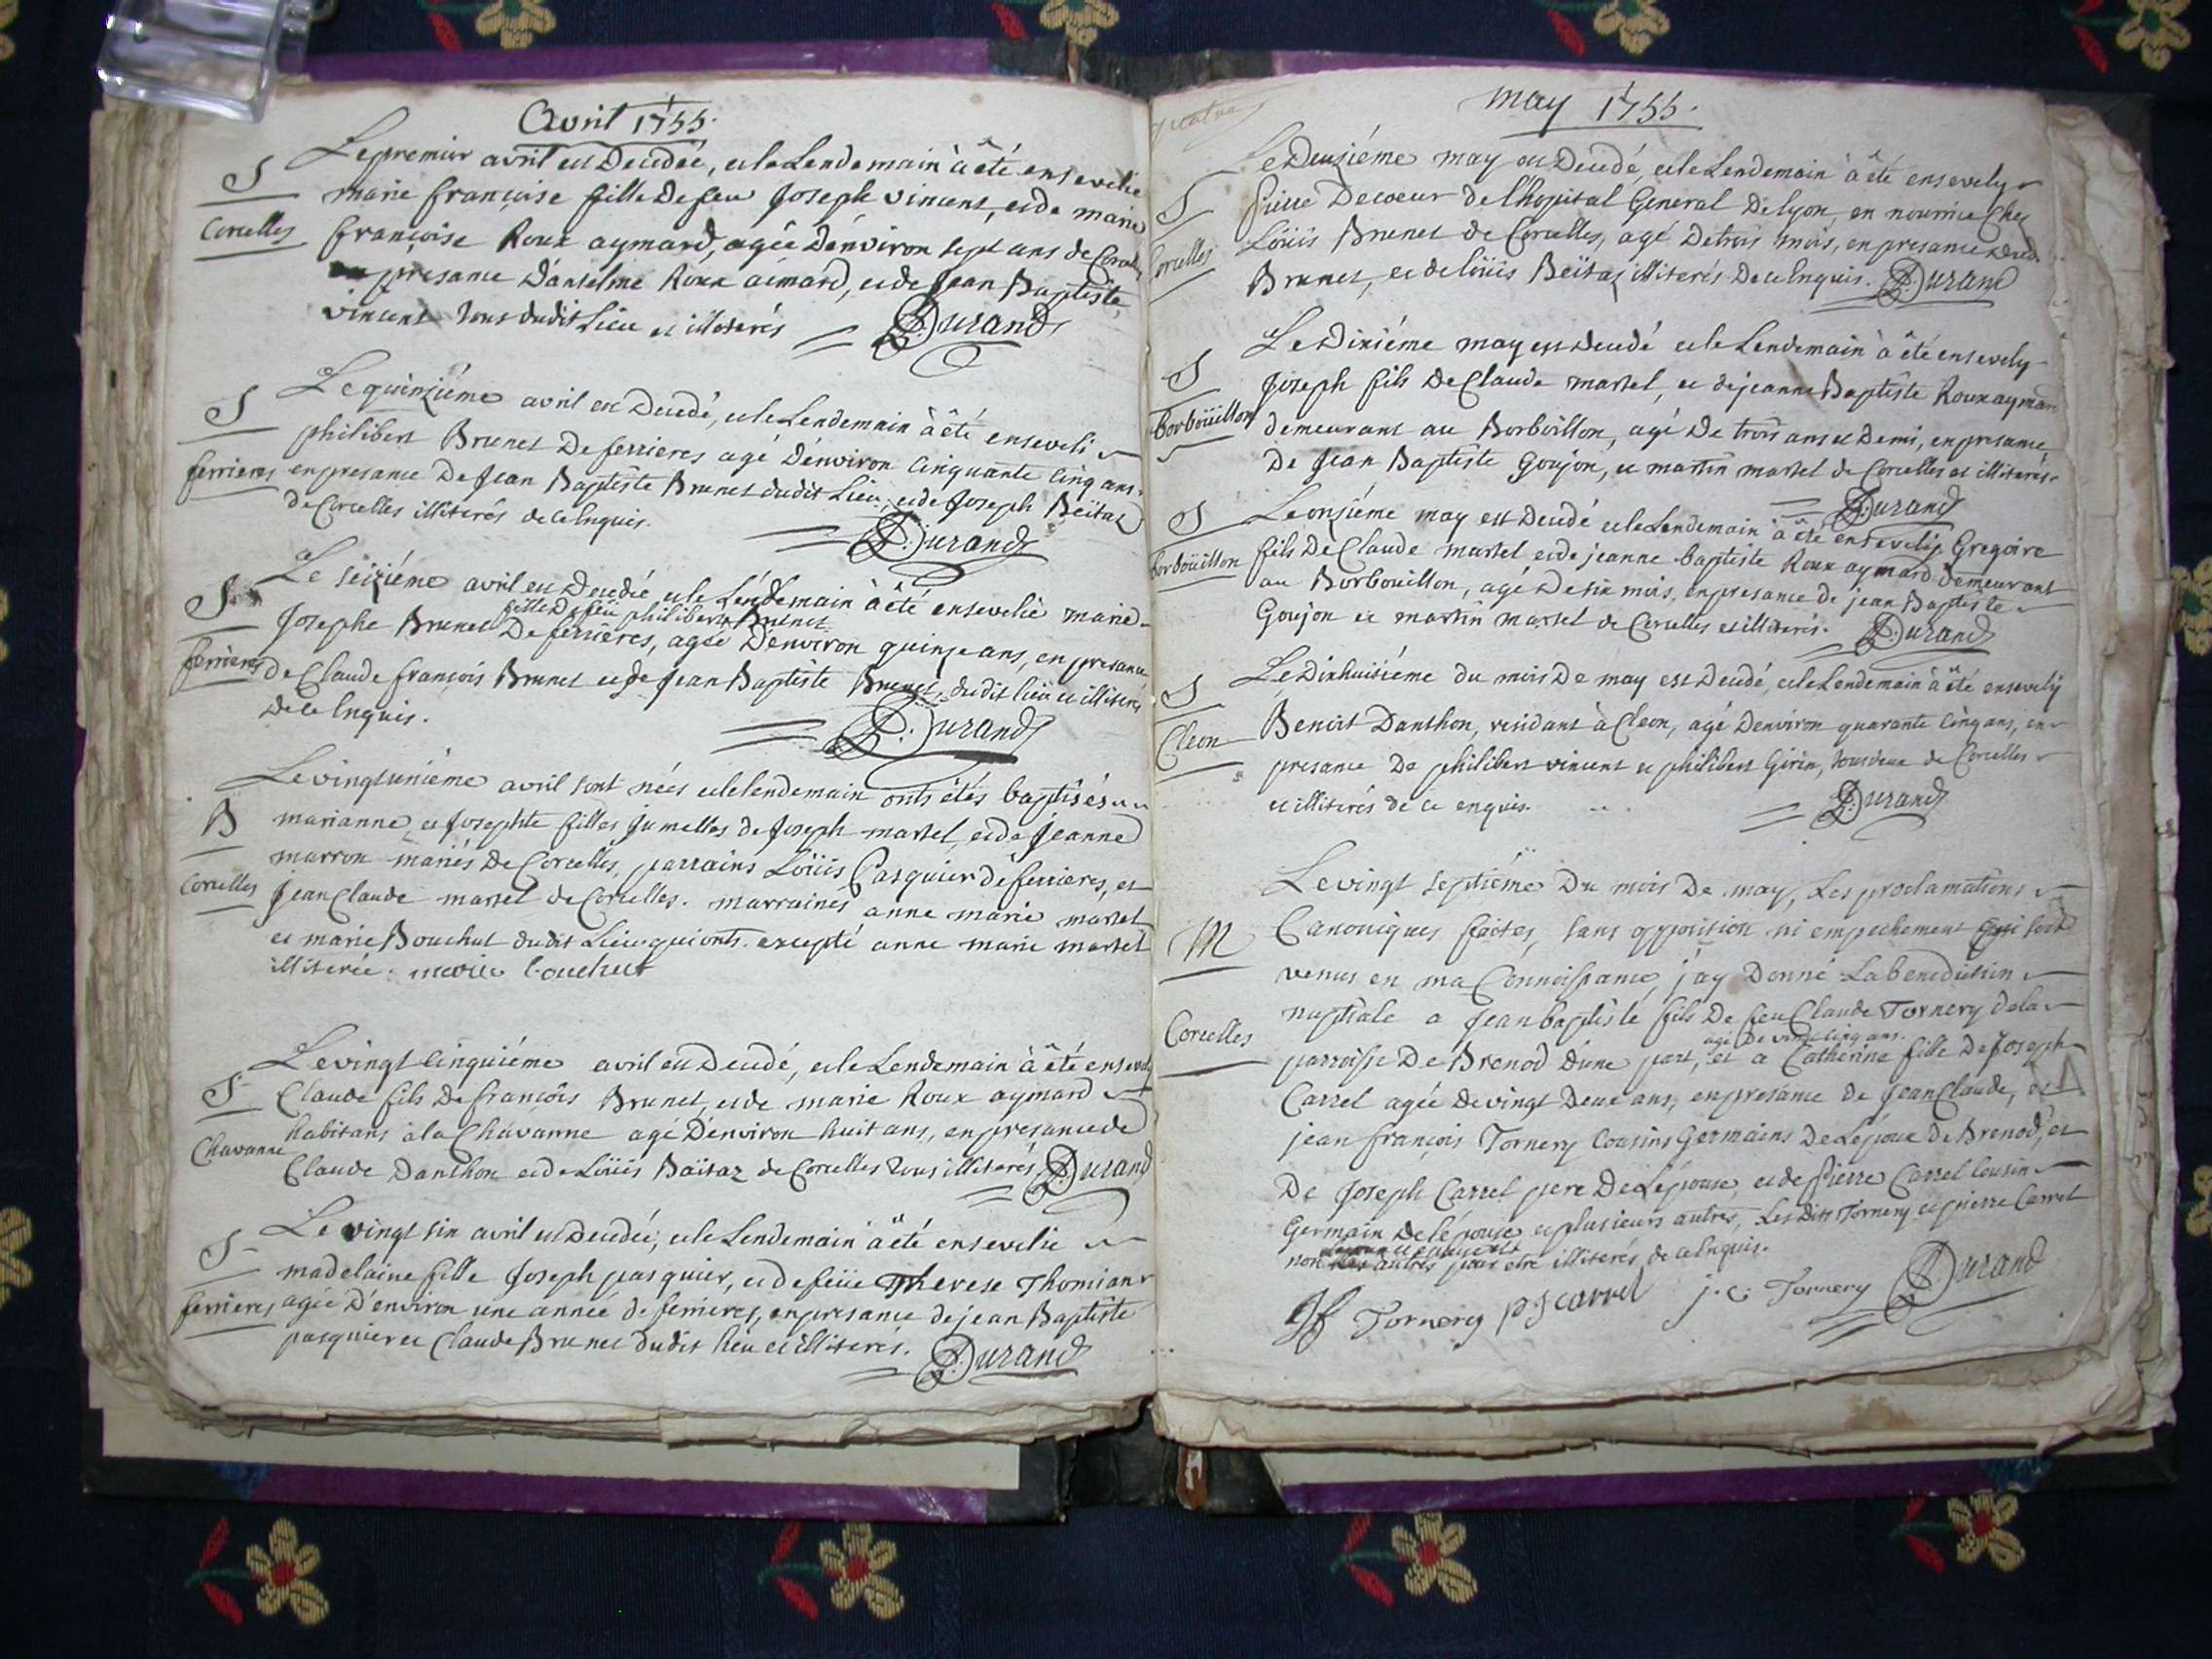 Avril 1755.
Le premier avril est Decedée, et le Lendemain à été ensevelie
S
marie françoise fille de feu Joseph vincent, et de marie
Corcelles
françoise Roux aymard, agée d'environ sept ans de Corcelles
presance d'anselme Roux aimard, et de Jean Baptiste
vincent tous dudit Lieu et illiterés
Durand
Le quinziéme avril est Decedé, et le Lendemain à été enseveli
S
philibert Brunet De ferrieres agé d'environ Cinquante Cinq ans
ferrieres
en presance De Jean Baptiste Brunet dudit Lieu, et de Joseph Beïtaz
de Corcelles illiterés de ce Enquis.
Durand
Le seiziéme avril est Decedée et le Lendemain à été ensevelie marie
S
fille De feu philibert Brunet
Josephe Brunet De ferrieres, agée D'environ quinze ans, en presance
ferrieres
de Claude françois Brunet et de Jean Baptiste Brunet, dudit lieu et illiterés
De ce Enquis.
Durand
Le vingtuniéme avril sont nées et le lendemain onts étés baptisés
B
marianne, et Josephte filles Jumelles de Joseph martel, et de Jeanne
marron mariés de Corcelles, parrains Loüis Pasquier de ferrieres, et
Corcelles
Jean Claude martel de Corcelles. marraines anne marie martel
et marie Bouchut dudit Lieu qui onts. excepté anne marie martel
illiterée. marie bouchut
Le vingt Cinquiéme avril est Decedé, et le Lendemain à été ensevely
S
Claude fils De françois Brunet, et de marie Roux aymard
habitans à la Chavanne agé D'environ huit ans, en presance de
Chavanne
Claude Danthon et de Loüis Baïtaz de Corcelles tous illiterés
Durand
Le vingt six avril est Decedée, et le Lendemain à été ensevelie
S
madelaine fille Joseph pasquier, et de feüe Therese Thomian
ferrieres
agée D'environ une année de ferrieres, en presance de jean Baptiste
pasquier et Claude Brunet dudit lieu et illiterés.
Durand
may 1755.
Le Deuxiéme may est Decedé, et le Lendemain à été ensevely
S
Pierre Decoeur de l'hopital General De lyon, en nourrice Chez
Corcelles
Loüis Brunet de Corcelles, agé De trois mois, en presance dud.
Brunet, et de loüis Beïtaz illiterés De ce Enquis.
Durand
Le Dixiéme may est decedé et le Lendemain à été ensevely
S
Joseph fils De Claude martel, et de jeanne Baptiste Roux aymard
Borboüillon
demeurant au Borboillon, agé De trois ans et Demi, en presance
De Jean Baptiste Goujon, et martin martel de Corcelles et illiterés.
Durand
S
Le onziéme may est Decedé et le Lendemain à été ensevely Gregoire
Borboüillon
fils De Claude martel et de jeanne baptiste Roux aymard demeurant
au Borbouillon, agé De six mois, en presance de jean Baptiste
Goujon et martin martel de Corcelles et illiterés.
Durand
Le Dixhuitiéme du mois De may est Decedé, et le Lendemain à été ensevely
S
Benoit Danthon, residant à Cleon, agé D'environ quarante Cinq ans, en
Cleon
presance De philibert vincent et philibert Girin, tous deux de Corcelles
et illiterés de ce enquis.
Durand
Le vingt septiéme Du mois De may, Les proclamations
M
Canoniques faites, sans opposition ni empechement qui soit
venus en ma Connoissance, j'ay Donné La benediction
nuptiale a Jean baptiste fils De feu Claude Tornery de la
Corcelles
agé De vingt Cinq ans.
parroisse De Brenod d'une part, et a Catherine fille De Joseph
Carrel agée de vingt Deux ans, en presance de Jean Claude, et
jean françois Tornery Cousins Germains De L'epoux de Brenod, et
De Joseph Carrel pere De L'epouse, et de Pierre Carrel Cousin
Germain De l'épouse et plusieurs autres, Les Dits Tornery et pierre Carrel
non les autres pour etre illiterés de ce Enquis.
Jf Tornery
p J carrel
j. c. Tornery
Durand